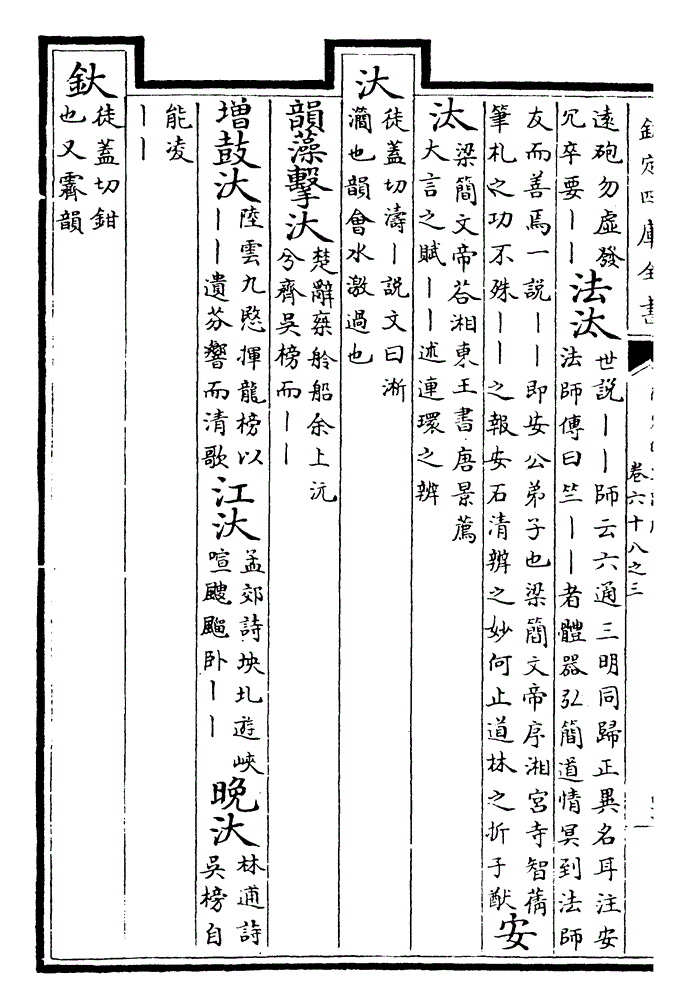 欽定四庫全書
卷六十八之三
遠砲勿虛發
冗卒要丨丨
法汰
世說丨丨師云六通三明同歸正異名耳注安
法師傳曰竺丨丨者體器弘簡道情冥到法師
友而善焉一說丨丨即安公弟子也梁簡文帝序湘宮寺智蒨
筆札之功不殊丨丨之報安石清辨之妙何止道林之折子猷
安
汰
梁簡文帝荅湘東王書唐景薦
大言之賦丨丨述連環之辨
汏
徒蓋切濤丨說文曰淅
灡也韻會水激過也
韻藻擊汏
楚辭椉舲船余上沅
兮齊吳榜而丨丨
增鼓汏
陸雲九愍揮龍榜以
丨丨遺芬響而清歌
江汏
孟郊詩坱圠遊峽
喧颼飀卧丨丨
晚汏
林逋詩
吳榜自
能凌
丨丨
釱
徒蓋切鉗
也又霽韻